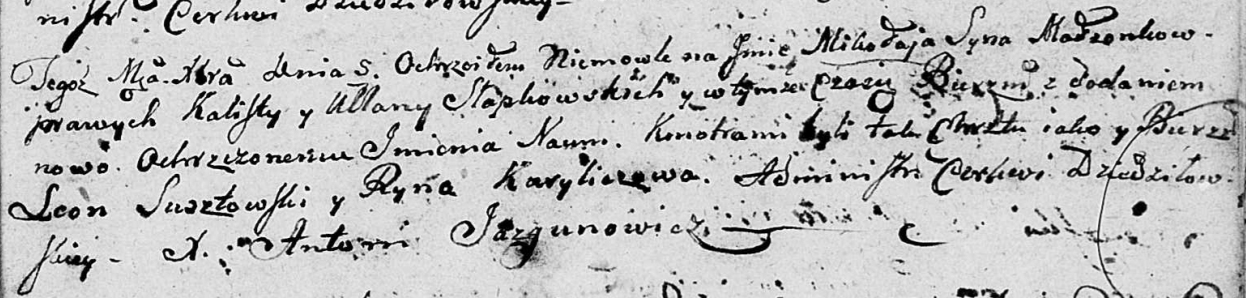 nistr. Cerkwi Dziedziłowskiey
Tegoż Mca Xbra Dnia 5. Ochrzciłem Niemowle na Jmie Mikołaja Syna Małżonkow
prawych Kalisty y Ullany Słapkowskich y w tymże czasie Bierzm z dodaniem
nowo Ochrzczonemu Jmienia Naum. Kmotrami byli tak Chrztu iako y Bierz
Leon Suszłowski y Ryna Karyliczowa. Administr Cerkwi Dziedziłow-
skiey - X. Antoni Jazgunowicz